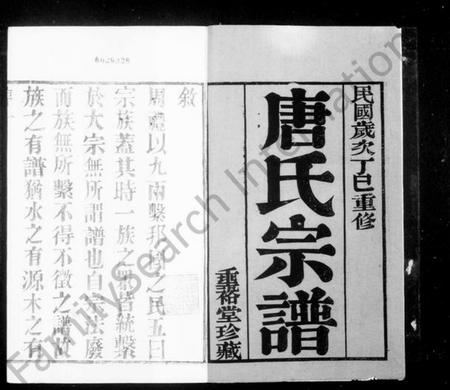 民國歲次丁巳重修
唐氏宗譜
重裕堂珍藏
敘
周禮以九兩繫邦國之民五曰
宗族蓋其時一族之眾皆統繫
於大宗無所謂譜也自宗法廢
而族無所繫不得不徵之譜故
族之有譜猶水之有源木之有
FamilySearch International